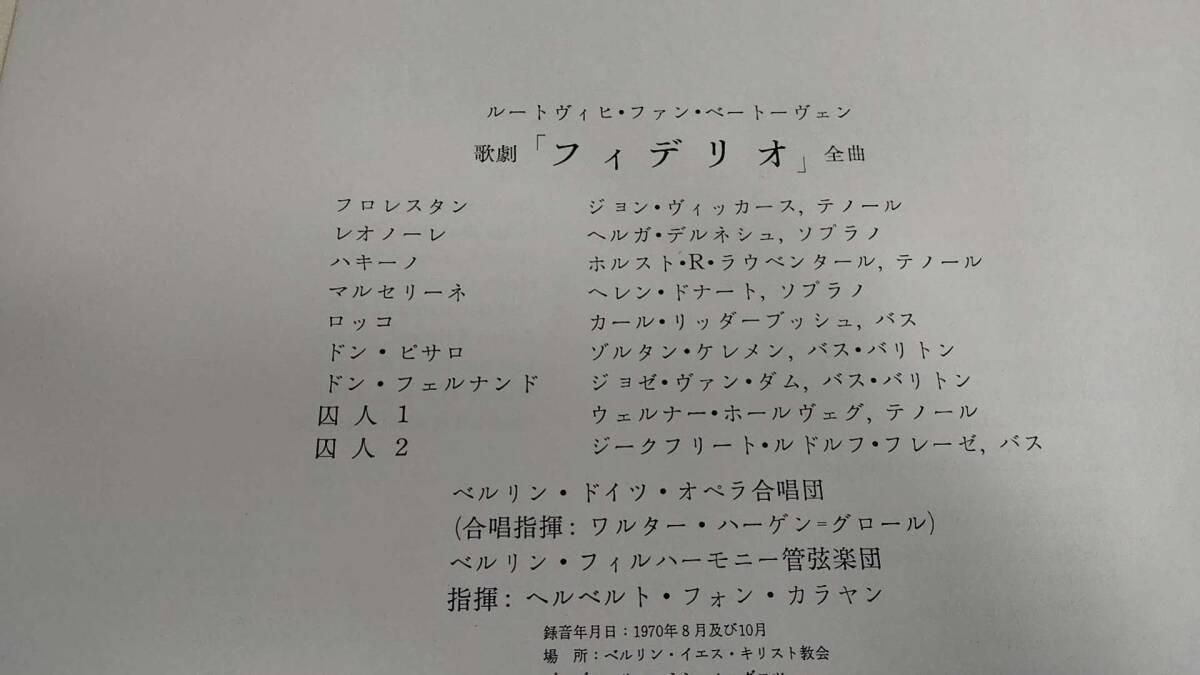 ルートヴィヒ・ファン・ベートーヴェン
歌劇「フィデリオ」全曲
フロレスタン　ジョン・ヴィッカース, テノール
レオノーレ　ヘルガ・デルネシュ, ソプラノ
ハキーノ　ホルスト・R・ラウベンタール, テノール
マルセリーネ　ヘレン・ドナート, ソプラノ
ロッコ　カール・リッダーブッシュ, バス
ドン・ピサロ　ゾルタン・ケレメン, バス・バリトン
ドン・フェルナンド　ジョゼ・ヴァン・ダム, バス・バリトン
囚人1　ウェルナー・ホールヴェグ, テノール
囚人2　ジークフリート・ルドルフ・フレーゼ, バス
ベルリン・ドイツ・オペラ合唱団
(合唱指揮: ワルター・ハーゲン=グロール)
ベルリン・フィルハーモニー管弦楽団
指揮: ヘルベルト・フォン・カラヤン
録音年月日：1970年8月及び10月
場　所：ベルリン・イエス・キリスト教会